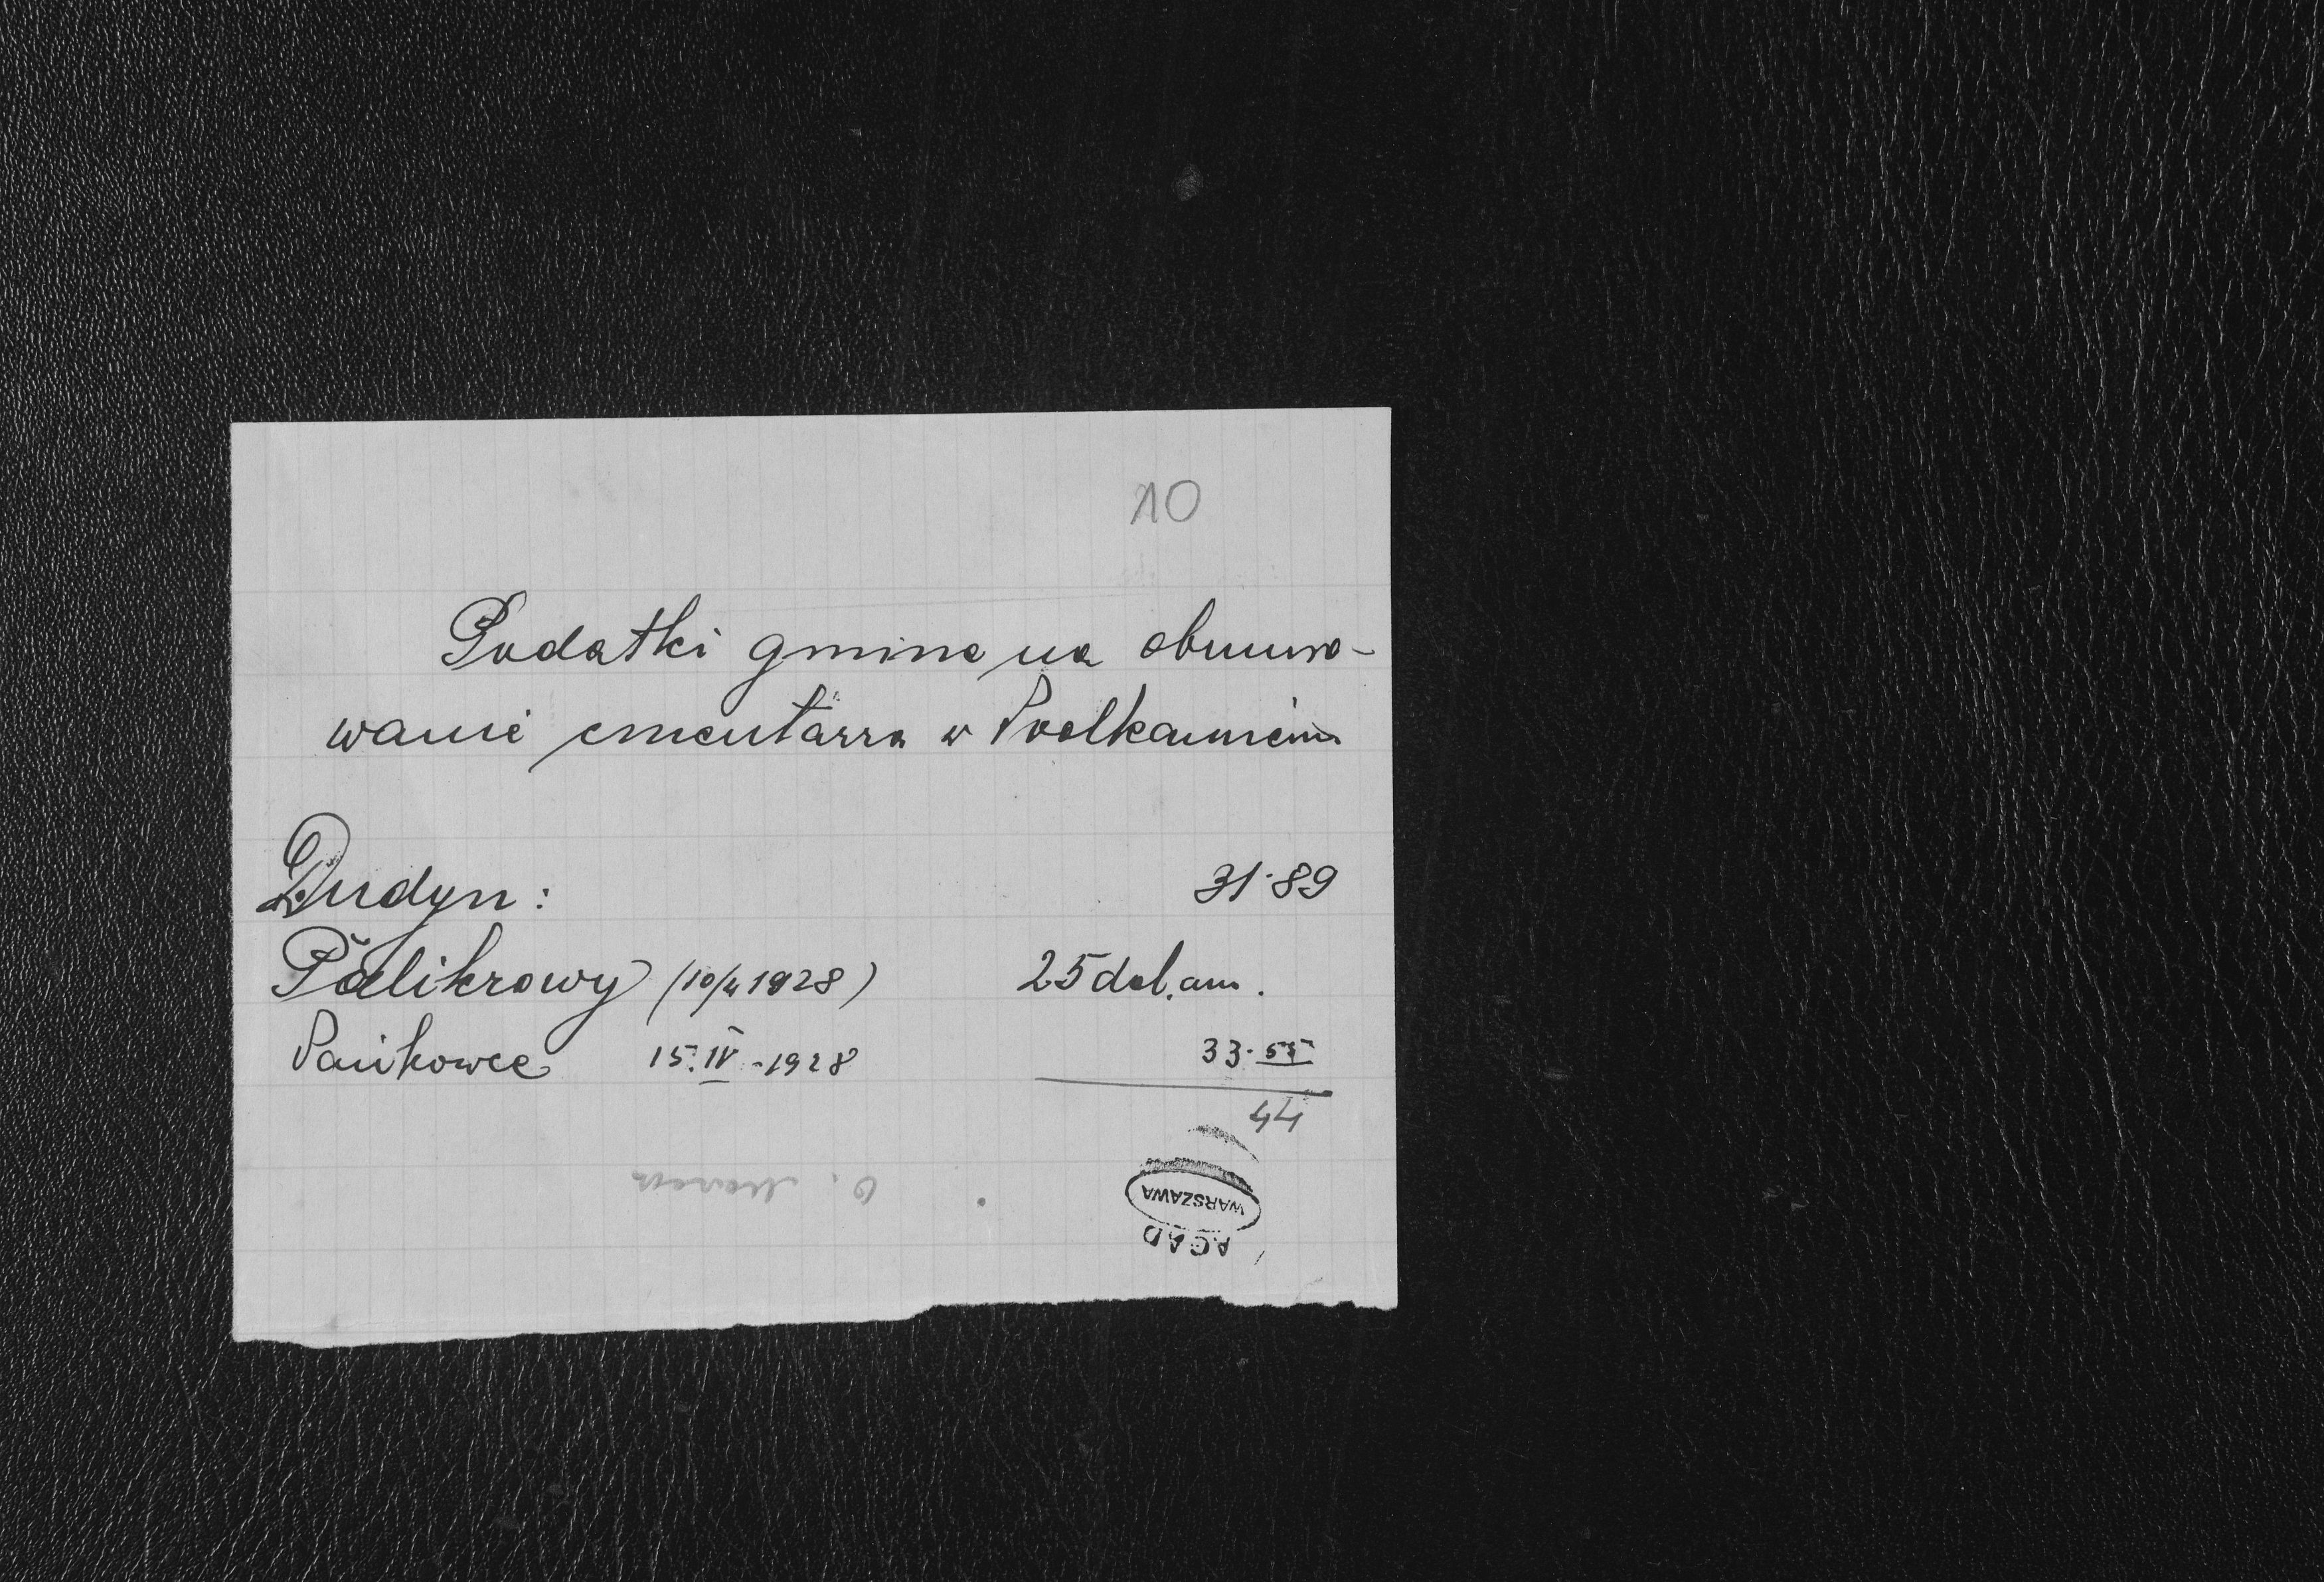 10
Podatki gmin na obmuro-
wanie cmentarza w Podkamieniu
Dudyn: 31·89
Palikrowy (10/4 1928) 25 dol. am.
Pańkowce 15. IV - 1928 33·55
44
WARSZAWA
AGAD